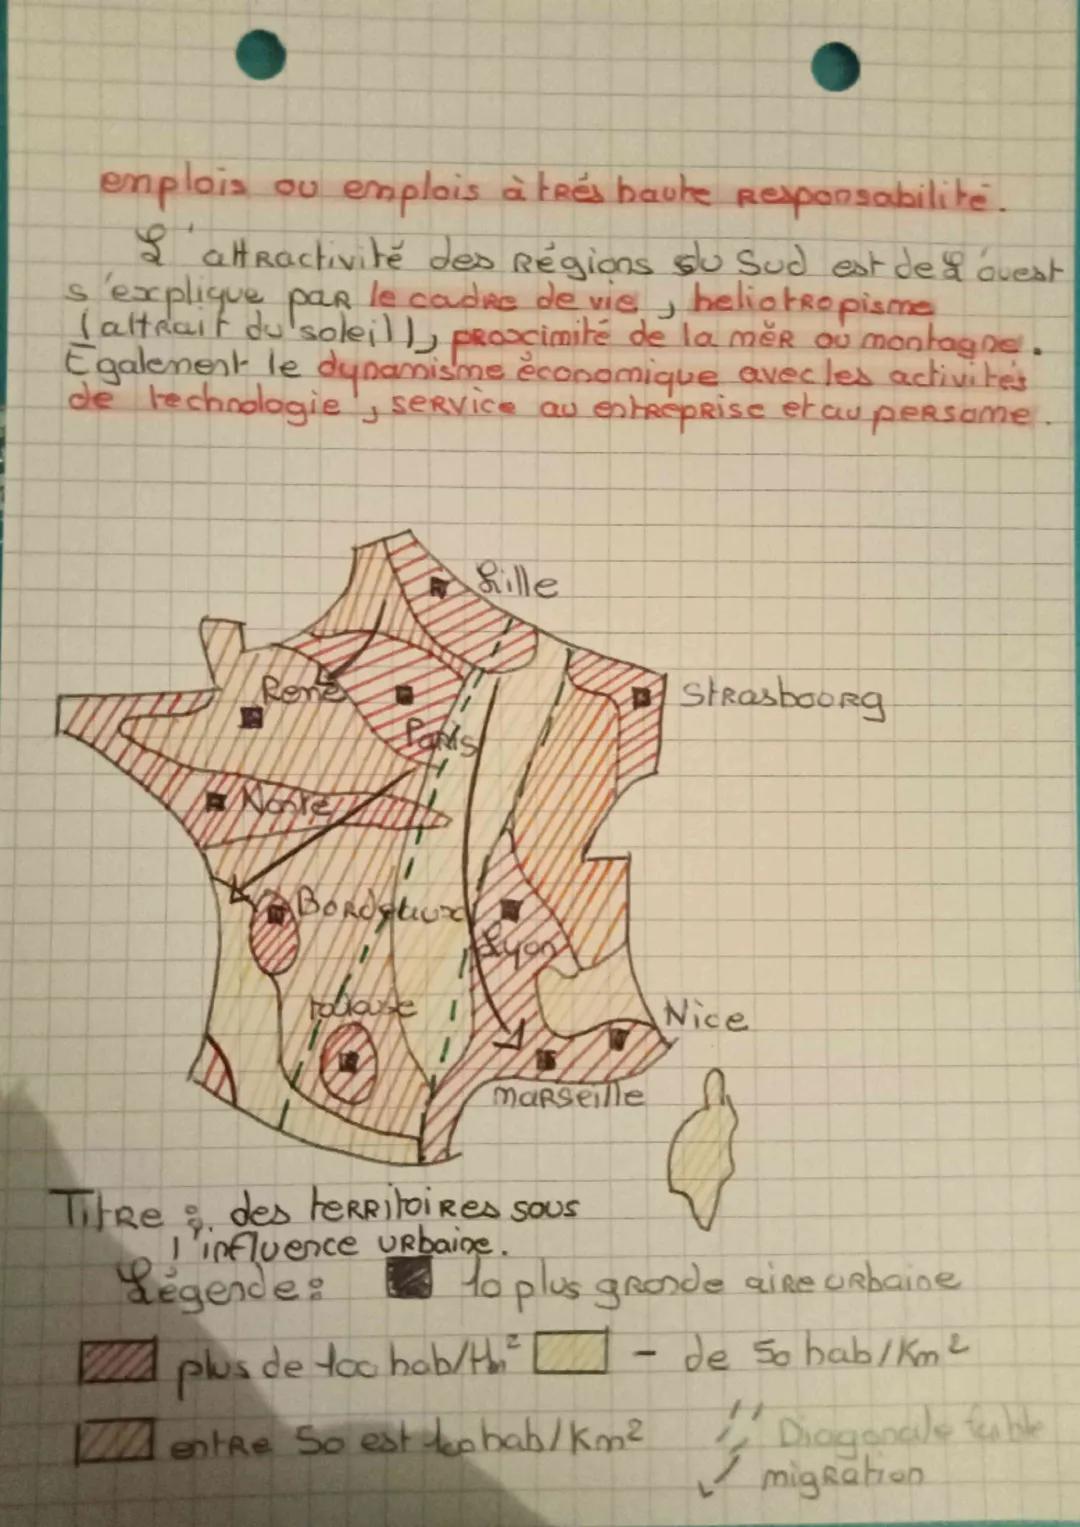 emplois ou emplois à trés haute responsabilité.
L'attractivité des régions du Sud est de l'ouest
s'explique par le cadre de vie, heliotropisme
(attrait du soleil), proximité de la mèr ou montagne.
Également le dynamisme économique avec les activités
de technologie, service au entreprise et au persome.
Lille
René
Strasboorg
Paris
Nante
Bordeaux
Lyon
toulouse
Nice
marseille
Titre : des territoires sous
l'influence urbaine.
Légende : 10 plus grande aire urbaine
plus de 100 hab/Km² - de 50 hab/Km²
entre 50 est 100 hab/Km² Diagonale faible
migration